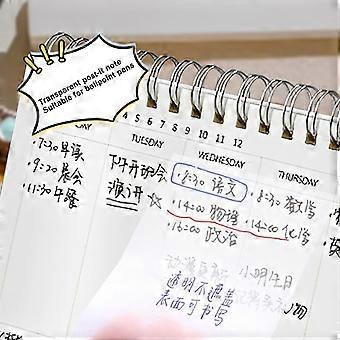 Transparent post-it note
Suitable for ballpoint pens
4 5 6 7 8 9 10 11 12
DAY
TUESDAY
WEDNESDAY
THURSDAY
·7:30早读
·9:30晨会
·11:30午睡
下午开班会
演讲 ☆
·8:30 语文
·14:00 物理
·16:00 政治
·8:30 数学
·14:00 化学
·英
小明生日
透明不遮盖
表面可书写